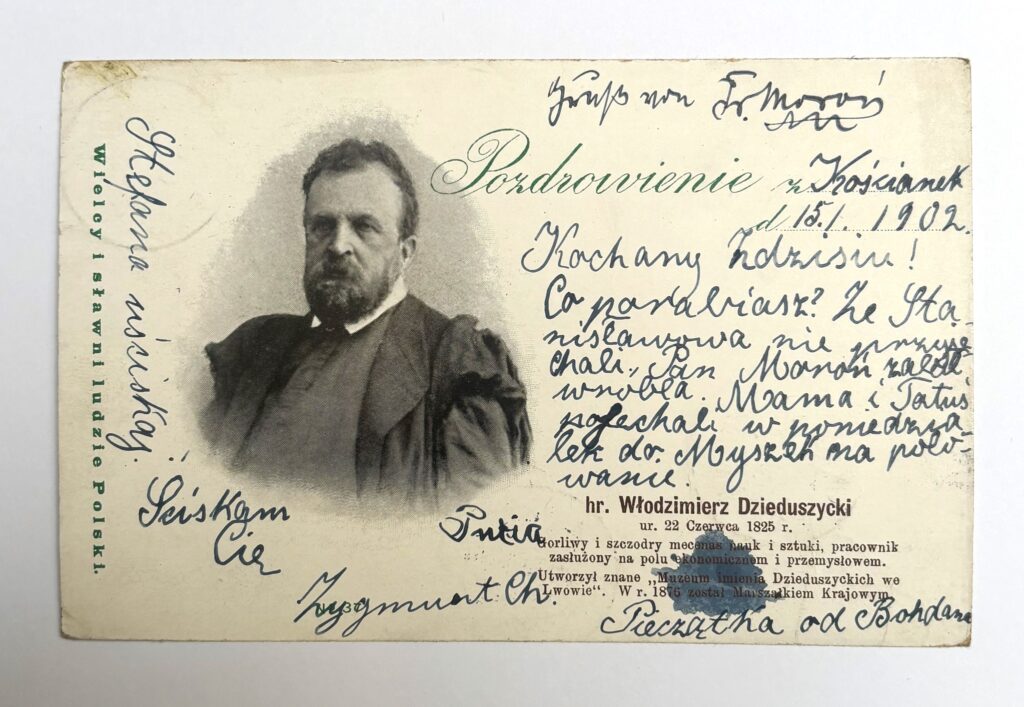 Gruß von Fr. Moroń
Pozdrowienie z Kościanek
d 15./1. 1902.
Kochany Zdzisiu!
Co porabiasz? Ze Sta-
nisławowa nie przyje
chali. Pan Moroń zabił
wróbla. Mama i Tatuś
pojechali w poniedzia
łek do Myszek na polo-
wanie.
hr. Włodzimierz Dzieduszycki
ur. 22 Czerwca 1825 r.
Gorliwy i szczodry mecenas nauk i sztuki, pracownik
zasłużony na polu ekonomicznem i przemysłowem.
Utworzył znane „Muzeum imienia Dzieduszyckich we
Lwowie“. W r. 1876 został Marszałkiem Krajowym.
Pieczątka od Bohdana
Ściskam
Cię
Zygmunt Ch.
Stefana uściskaj.
Wielcy i sławni ludzie Polski.